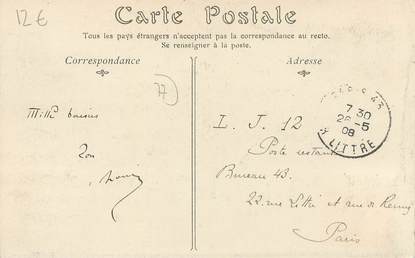 12 €
Carte Postale
Tous les pays étrangers n'acceptent pas la correspondance au recto.
Se renseigner à la poste.
Correspondance
Adresse
77
Mille baisers
Ton
L. J. 12
Poste restante
Bureau 43.
22 rue Littré et rue de Rennes
Paris
PARIS 43
7 30
26-5
08
R. LITTRE